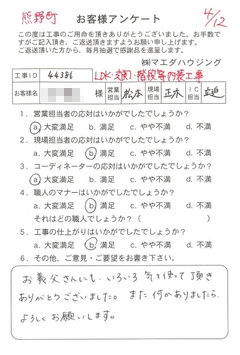 熊野町
お客様アンケート
4/12
この度は工事のご用命を頂きありがとうございました。お手数で
すがご記入頂き、ご返送頂きますようお願い申し上げます。
ご返送頂いた方から、毎月抽選で感謝品を進呈します。
㈱マエダハウジング
工事ID 44386 LDK・玄関・階段等内装工事
お客様名 様 営業担当 松本 現場担当 正木 IC担当
1. 営業担当者の応対はいかがでしたでしょうか?
a. 大変満足 b. 満足 c. やや不満 d. 不満
2. 現場担当者の応対はいかがでしたでしょうか?
a. 大変満足 b. 満足 c. やや不満 d. 不満
3. コーディネーターの応対はいかがでしたでしょうか?
a. 大変満足 b. 満足 c. やや不満 d. 不満
4. 職人のマナーはいかがでしたでしょうか?
a. 大変満足 b. 満足 c. やや不満 d. 不満
それはどの職人でしょうか?( )
5. 工事の仕上がりはいかがでしたでしょうか?
a. 大変満足 b. 満足 c. やや不満 d. 不満
6. その他、ご意見・ご要望をお書き下さい。
お義父さんにも、いろいろ気を使って頂き
ありがとうございました。また何かありましたら、
よろしくお願いします。